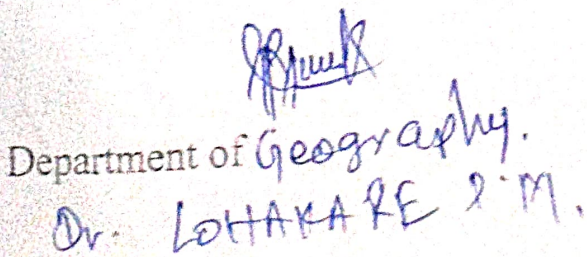 Department of Geography.
Dr. LOHAKARE S.M.